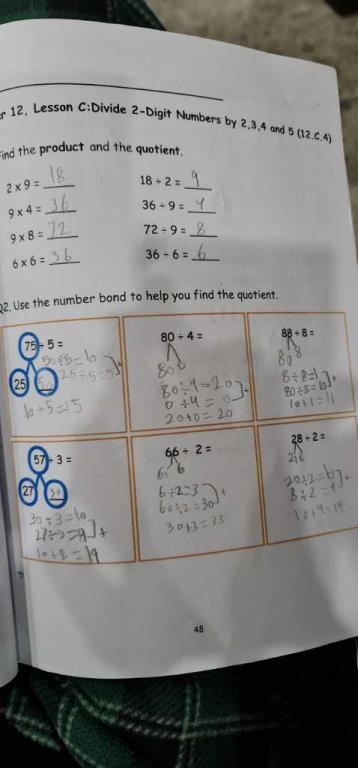 r 12, Lesson C:Divide 2-Digit Numbers by 2,3,4 and 5 (12.C.4)
ind the product and the quotient.
2 x 9 = 18
18 ÷ 2 = 9
9 x 4 = 36
36 ÷ 9 = 4
9 x 8 = 72
72 ÷ 9 = 8
6 x 6 = 36
36 ÷ 6 = 6
Q2. Use the number bond to help you find the quotient.
75 ÷ 5 =
50÷5=10
25 50 25÷5=5 +
10+5=15
80 ÷ 4 =
80 0
80÷4=20
0÷4=0 +
20+0=20
88 ÷ 8 =
80 8
8÷8=1
80÷8=10 +
10+1=11
57 ÷ 3 =
27 30
30÷3=10
27÷3=9 +
10+ =19
66 ÷ 2 =
60 6
6÷2=3
60÷2=30 +
30+3=33
28 ÷ 2 =
20 8
20÷2=10
8÷2=4 +
10+4=14
48